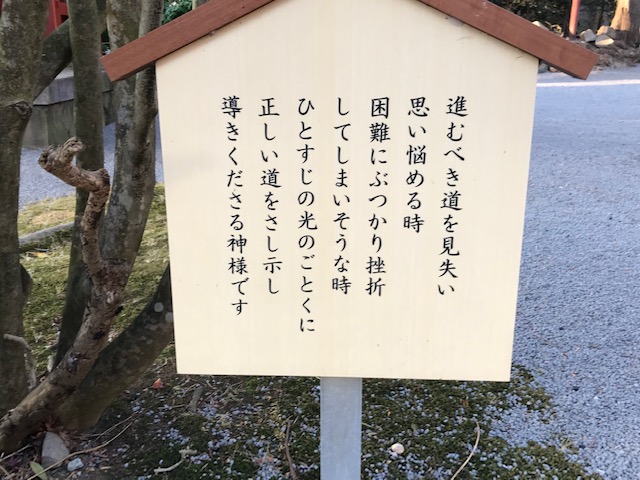 進むべき道を見失い
思い悩める時
困難にぶつかり挫折
してしまいそうな時
ひとすじの光のごとくに
正しい道をさし示し
導きくださる神様です